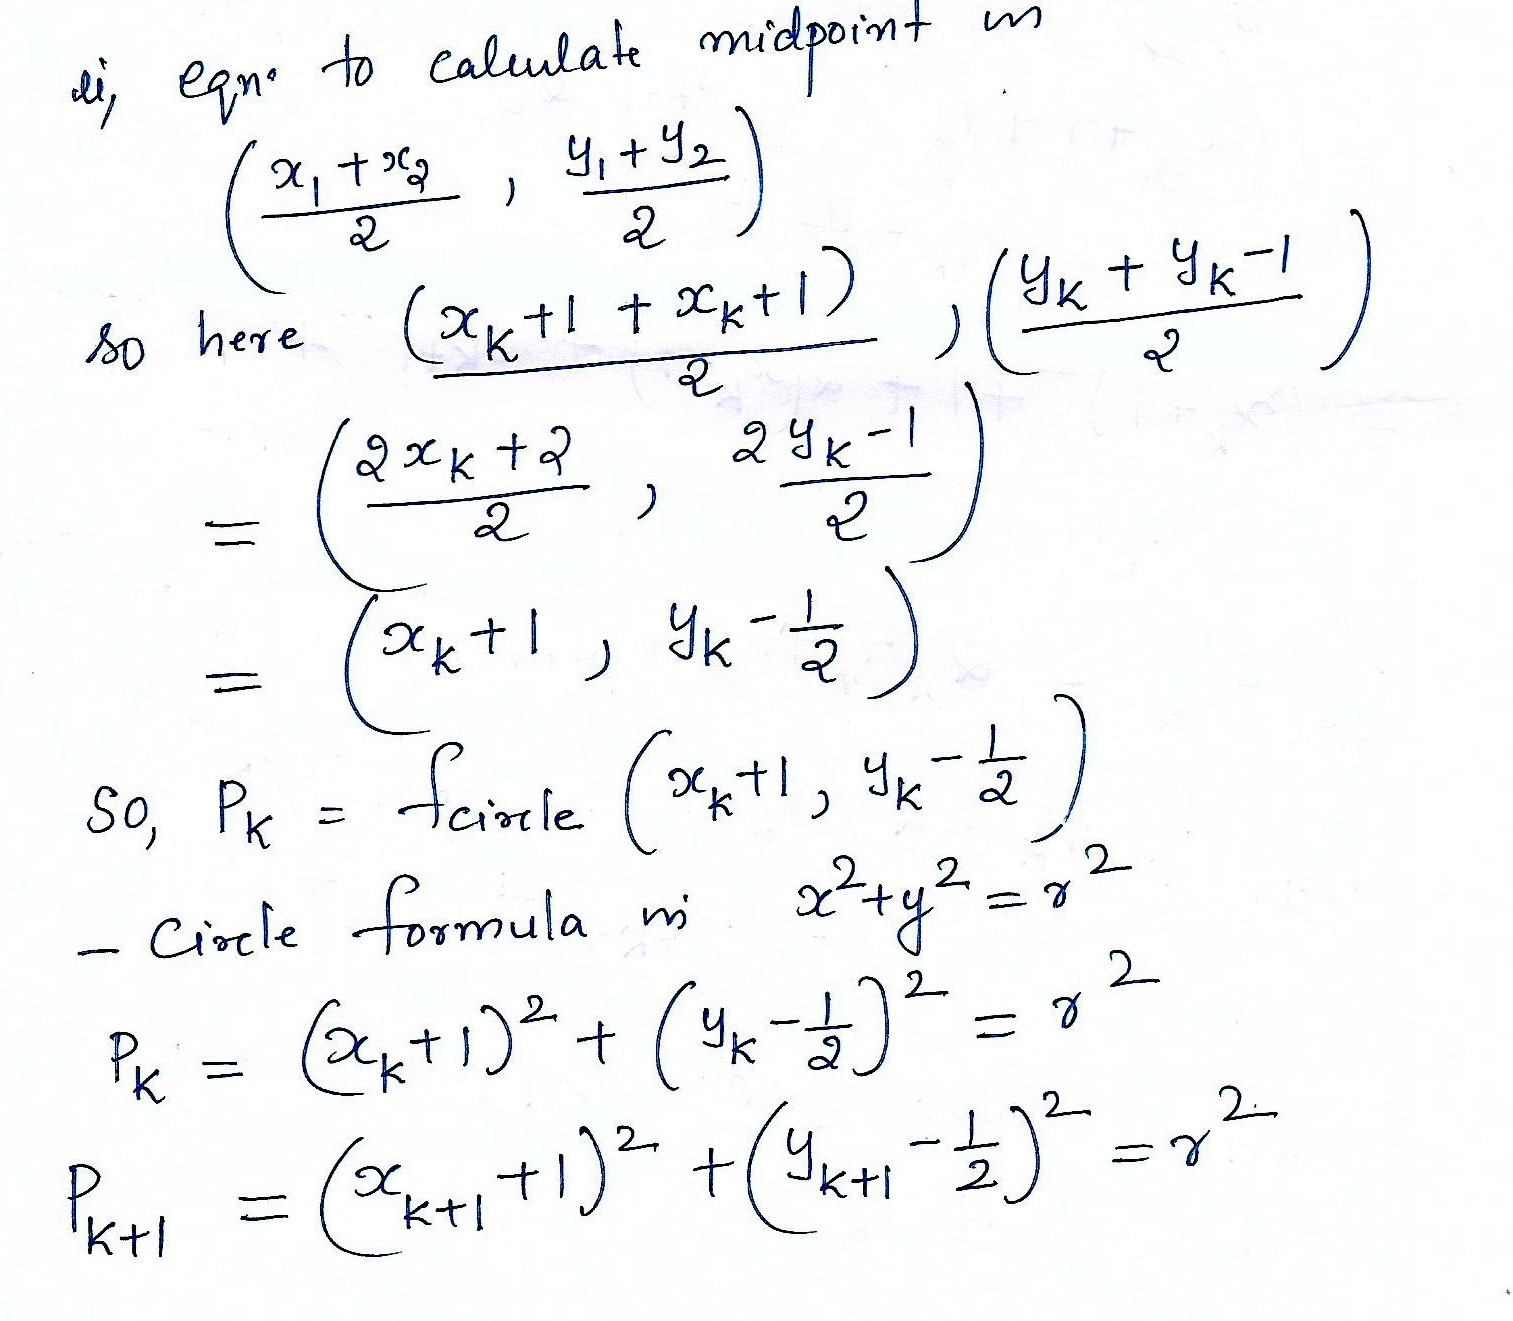 ii, eqn. to calculate midpoint is
(x₁+x₂/2 , y₁+y₂/2)
so here (xₖ+1 + xₖ+1)/2 , (yₖ + yₖ-1/2)
= (2xₖ+2/2 , 2yₖ-1/2)
= (xₖ+1 , yₖ-1/2)
So, Pₖ = fcircle (xₖ+1, yₖ-1/2)
- Circle formula is x²+y²=r²
Pₖ = (xₖ+1)² + (yₖ-1/2)² = r²
Pₖ₊₁ = (xₖ₊₁+1)² + (yₖ₊₁-1/2)² = r²